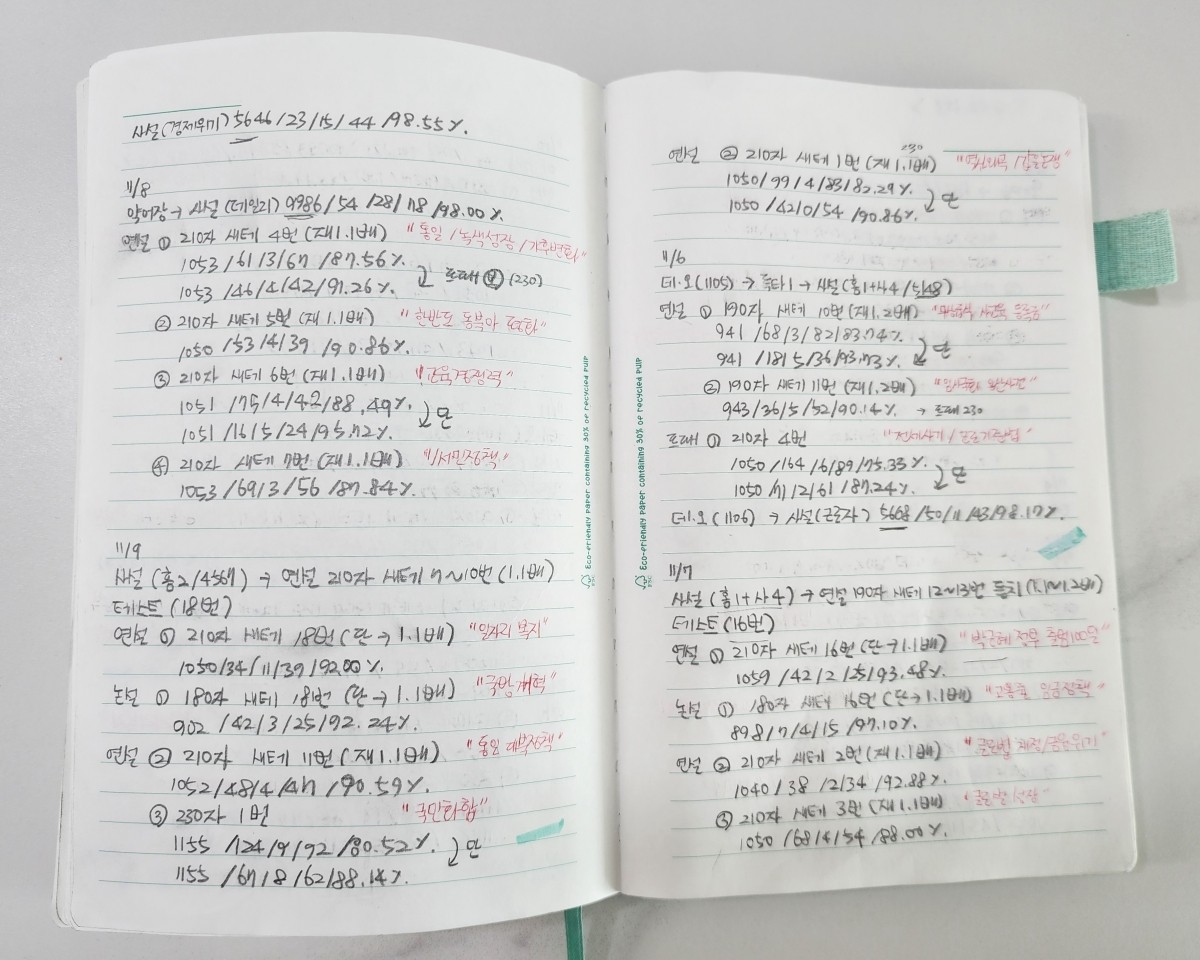 사설(경제위기) 5646/23/15/44/98.55%.
11/8
약어장→ 사설(데일리) 9986/54/28/118/98.00%.
연설 ① 210자 새테 4번(재1.1배) "통일/녹색성장/기후변화"
1053/61/3/67/87.56%.
1053/46/4/42/91.26%. (230)
② 210자 새테 5번(재1.1배) "한반도 동북아 평화"
1050/53/4/39/90.86%.
③ 210자 새테 6번(재1.1배) "교육경쟁력"
1051/75/4/42/88.49%. 단
1051/16/5/24/95.72%.
④ 210자 새테 7번(재1.1배) "서민정책"
1053/69/3/56/87.84%.
11/9
사설(홍2/4567) → 연설 210자 새테 7~10번(1.1배)
테스트(18번)
연설 ① 210자 새테 18번(단→1.1배) "일자리 복지"
1050/34/11/39/92.00%.
논설 ① 180자 새테 18번(단→1.1배) "국방개혁"
902/42/3/25/92.24%.
연설 ② 210자 새테 11번(재1.1배) "통일 대북정책"
1052/48/4/47/90.59%.
③ 230자 1번 "국민화합"
1155/124/9/92/80.52%. 단
1155/67/8/62/88.14%.
Eco-friendly paper containing 30% of recycled pulp
230
연설 ② 210자 새테 1번(재1.1배)
1050/99/4/83/82.29%. 단
1050/42/0/54/90.86%.
11/6
데.오(1105) → 특타1 → 사설(홍1+사4/548)
연설 ① 190자 새테 10번(재1.2배)
941/68/3/82/83.74%. 단
941/18/5/36/93.73%.
② 190자 새테 11번(재1.2배)
943/36/5/52/90.14%. → 230
① 210자 4번
1050/164/6/89/75.33%. 단
1050/71/2/61/87.24%.
데.오(1106) → 사설(근로자) 5668/50/11/43/98.17%.
11/7
사설(홍1+사4) → 연설 190자 새테 12~13번 듣지(1.1~1.2배)
테스트(16번)
연설 ① 210자 새테 16번(단→1.1배) "박근혜 정부 출범100일"
1059/42/2/25/93.48%.
논설 ① 180자 새테 16번(단→1.1배) "고환율 임금정책"
898/7/4/15/97.10%.
연설 ② 210자 새테 2번(재1.1배)
1040/38/2/34/92.88%.
③ 210자 새테 3번(재1.1배)
1050/68/4/54/88.00%.
Eco-friendly paper containing 30% of recycled pulp